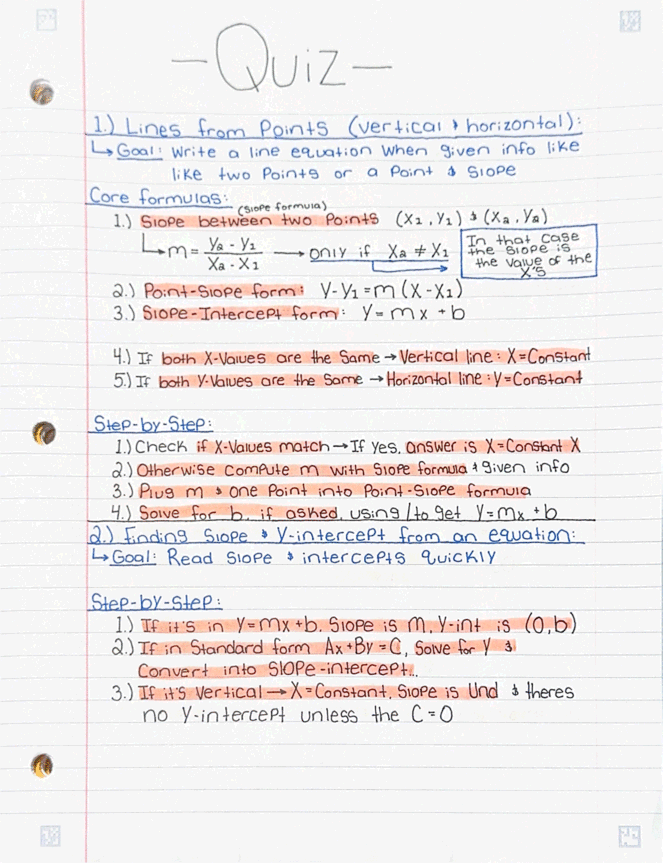 -Quiz-
1.) Lines from Points (vertical & horizontal):
↳ Goal: Write a line equation when given info like
like two Points or a Point & Slope
Core formulas:
(Slope formula)
1.) Slope between two Points (X₁, Y₁) & (X₂, Y₂)
↳ m = (Y₂ - Y₁) / (X₂ - X₁) → only if X₂ ≠ X₁
In that case
the slope is
the value of the
X's
2.) Point-Slope form: Y-Y₁=m(X-X₁)
3.) Slope-Intercept form: Y=mx+b
4.) If both X-Values are the Same → Vertical line: X=Constant
5.) If both Y-Values are the Same → Horizontal line: Y=Constant
Step-by-Step:
1.) Check if X-Values match → If yes, answer is X=Constant X
2.) Otherwise compute m with Slope formula & given info
3.) Plug m & one Point into Point-Slope formula
4.) Solve for b, if asked, using / to get Y=mx+b
2.) Finding Slope & Y-intercept from an equation:
↳ Goal: Read Slope & intercepts quickly
Step-by-Step:
1.) If it's in Y=mx+b. Slope is m, Y-int is (0,b)
2.) If in Standard form Ax+By=C, Solve for Y &
Convert into Slope-intercept..
3.) If it's Vertical → X=Constant, Slope is Und & theres
no Y-intercept unless the C=0